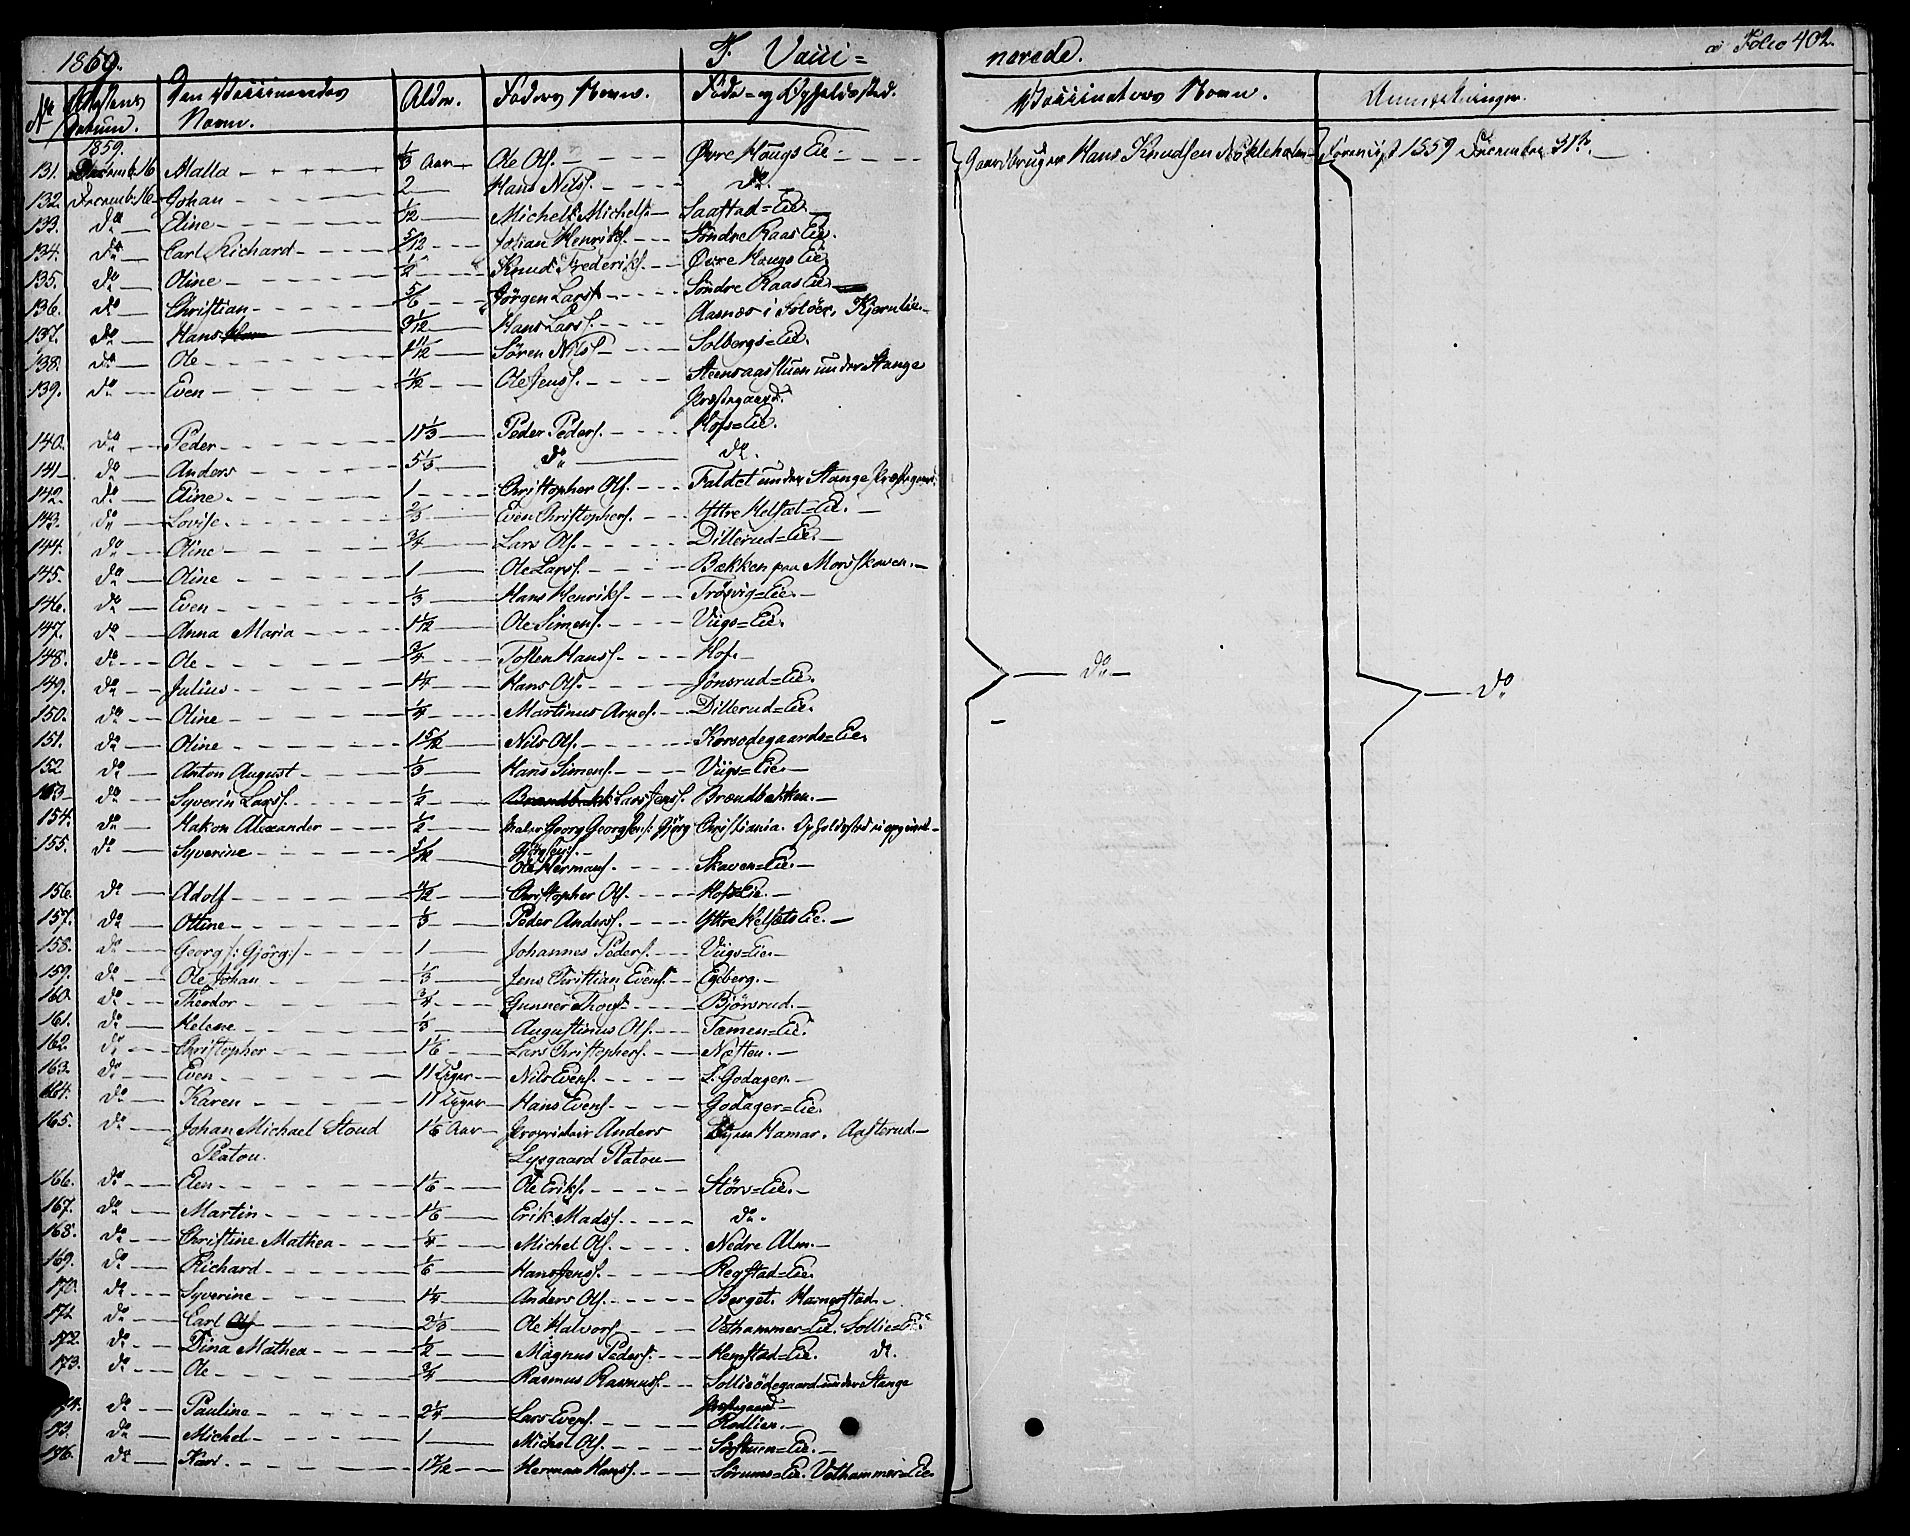 1859. F. Vacci=
nerede. a Folio 402.
No Attestens Datum. Den Vaccineredes Navn. Alder. Faders Navn. Føde- og Opholdssted. Vaccinateurs Navn. Anmærkninger.
1859
131. Decemb. 16 Malla 1/3 Aar Ole Ols. Øvre Hougs Eie Gaardbruger Hans Knudsen Nökleholm Forevist 1859 December 31te
132. Decemb. 16 Johan 2 Hans Nils. do.
133. do Eline 1/12 Michel Michels. Saastad=Eie.
134. do Carl Richard 5/12 Johan Henriks. Söndre Raas Eie.
135. do Oline 1/2 Knud Frederiks. Øvre Hougs Eie
136. do Christian 5/6 Jörgen Lars. Söndre Raas Eie
137. do Hans 3 1/12 Hans Lars. Aasnæs i Solöer, Kjernlie
138. do Ole Sören Nils. Solbergs=Eie.
139. do Even Ole Jens. Steensaasstuen under Stange
Præstegaard.
140. do Peder 11 1/3 Peder Peders. Hofs=Eie.
141 do Anders 5 1/3 do do.
142. do Eline 1 Christopher Ols. Faldet under Stange Præstegaard
143. do Lovise 2/3 Even Christophers. Yttre Helset=Eie.
144. do Oline 3/4 Lars Ols. Dillerud=Eie.
145. do Oline 1 Ole Lars. Bækken paa Morskoven.
146. do Even 1/3 Hans Henriks. Frösvig=Eie.
147. do Anna Maria 1 1/12 Ole Simens. Viigs=Eie.
148. do Ole 3/4 Tosten Hans. Hof.
149. do Julius 1 1/4 Hans Ols. Jönsrud=Eie. do do
150. do Oline 1/4 Martinus Arnes. Dillerud=Eie.
151. do Oline 1 5/12 Nils Ols. Korsodegaards=Eie.
152 do Anton August 1/3 Hans Simens. Viigs=Eie.
153 do Syverin Lars. 1/2 Lars Jens. Brændbakken.
154. do Hakon Alexander 1/2 Maler Georg Georgsen /: Gjörg Christiania. Opholdssted ei opgivet
155. do Syverine 5/12 Gjörgsen:/
Ole Hermans. Skaven=Eie.
156. do Adolf Christopher Ols. Hofs Eie.
157. do Ottine 1/3 Peder Anders. Yttre Helsets Eie.
158. do Georg /: Gjörg:/ 1 Johannes Peders. Viigs=Eie.
159. do Ole Johan 1/3 Jens Christian Evens. Egeberg.
160. do Theodor 3/4 Gunner Björnrud.
161. do Helene 1/3 Augustinus Ols. Tæmen=Eie.
162. do Christopher 1 1/6 Lars Christophers. Næsten.
163. do Even 11 Uger Nils Evens. L. Godager.
164. do Karen 11 Uger Hans Evens. Godager=Eie.
165. do Johan Michael Stoud 1 1/6 Aar Proprietair Anders Byen Hamar. Aasterud.
Platou. Lysgaard Platou
166. do Elen 1 1/6 Ole Eriks. Störs=Eie.
167. do Martin 1 1/6 Erik Mads. do.
168. do Christine Mathea 1/4 Michel Ols. Nedre Alm.
169. do Richard 1/6 Hans Jens. Regstad=Eie.
170. do Syverine 1 1/4 Anders Ols. Berget. Hamerstad.
171 do Carl 2 1/3 Ole Halvors. Vethammer=Eie. Sollie=Eie
172. do Dina Mathea 1/2 Magnus Peders. Hemstad=Eie. do.
173. do Ole 3/4 Rasmus Rasmus. Sollieödegaard under Stange
Præstegaard
174. do Pauline 2 1/4 Lars Evens. Rodlien.
175. do Michel 1 Michel Ols. Sörstuen=Eie.
176. do Kari 1 7/12 Herman Hans. Sörums=Eie. Vethammer=Eie.